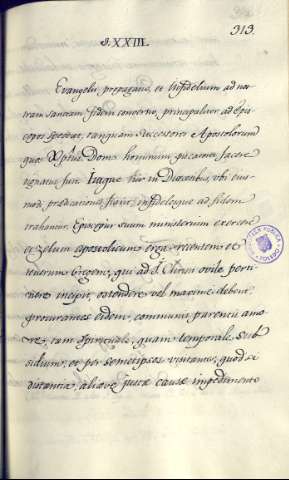 §. XXIII.
313.
Evangelii propagatio, et Infidelium ad nos-
tram sanctam fidem conversio, principaliter ad Epis-
copos spectat, tanquam successores Apostolorum
quos Xptus Dom. hominum piscatores facere
dignatus fuit. Itaque his in Diocesibus, ubi eius-
modi predicationes fiunt, infidelesque ad fidem
trahuntur, Episcopi suum ministerium exercere
et zelum apostolicum erga recentem et
tenerum Gregem, qui ad J. Christi ovile perti-
nere incipit, ostendere vel maxime debent
procurantes eidem communis parentis amo
re, tam spirituale, quam temporale sub
sidium, et per semetipsos visitantes, quod si
distantia, aliave justae causae impedimento